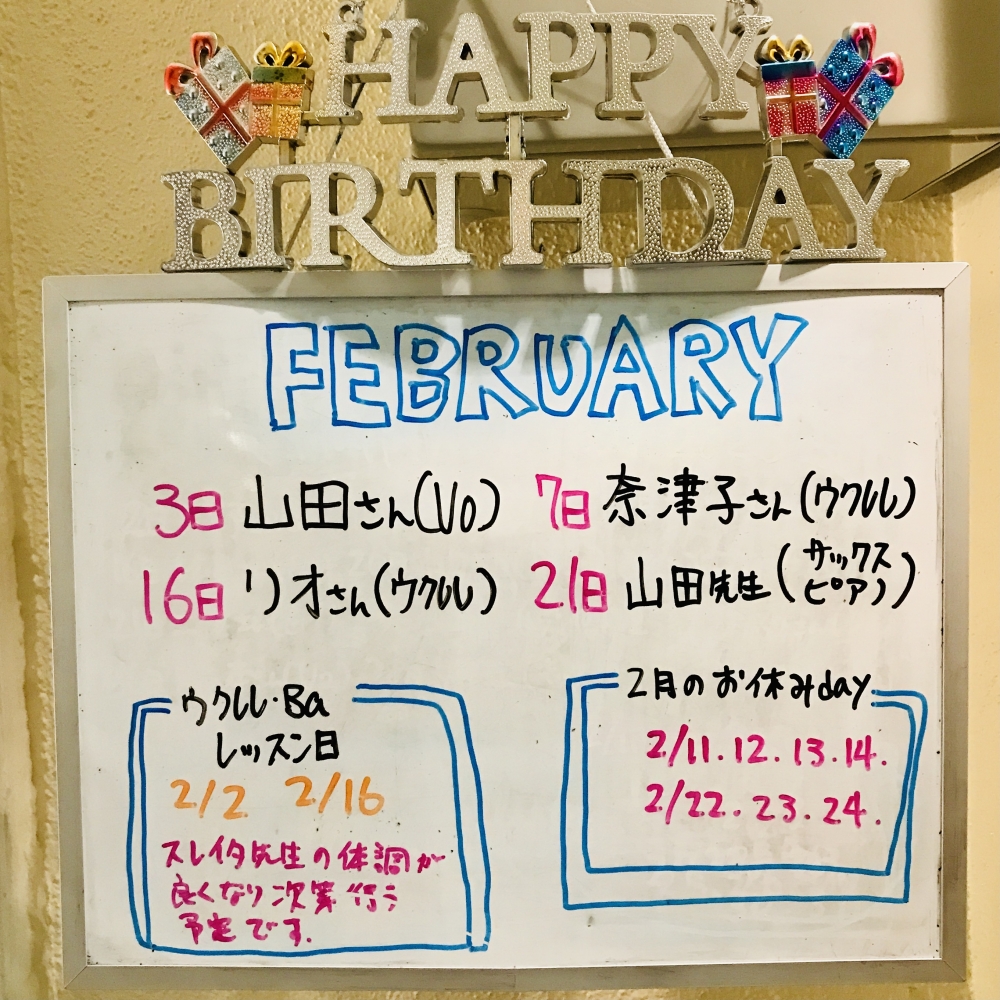 HAPPY
BIRTHDAY
FEBRUARY
3日 山田さん(Vo) 7日 奈津子さん(ウクレレ)
16日 リオさん(ウクレレ) 21日 山田先生(サックス ピアノ)
ウクレレ・Ba
レッスン日
2/2 2/16
スレイタ先生の体調が
良くなり次第行う
予定です.
2月のお休みday
2/11.12.13.14.
2/22.23.24.